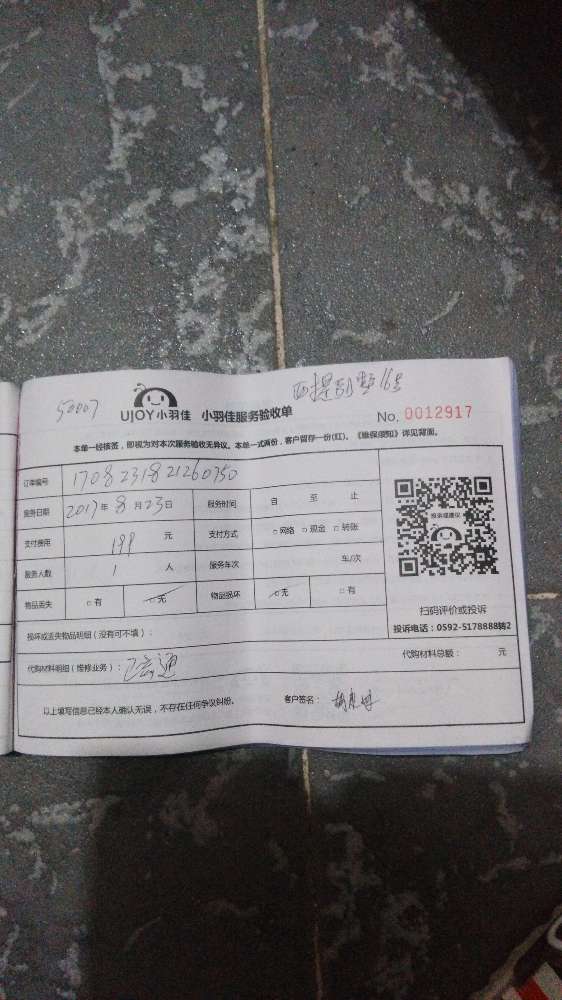 50007
西堤别墅16号
UJOY小羽佳 小羽佳服务验收单
No. 0012917
本单一经核签，即视为对本次服务验收无异议。本单一式两份，客户留存一份(红)。《维保须知》详见背面。
订单编号 1708231821260350
服务日期 2017年8月23日 服务时间 自 至 止
支付费用 199 元 支付方式 □网络 □现金 □转账
服务人数 1 人 服务车次 车/次
物品丢失 □有 □无 物品损坏 □无 □有
扫码评价或投诉
投诉电话：0592-5178888转2
损坏或丢失物品明细（没有可不填）：
代购材料明细（维修业务）：已疏通 代购材料总额： 元
以上填写信息已经本人确认无误，不存在任何争议纠纷。 客户签名：